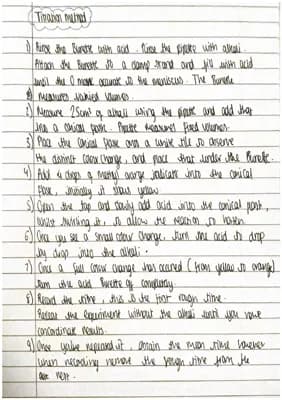 Titration method
1) Rinse the Burette with acid. Rinse the pipette with alkali.
Attach the Burette to a clamp stand and fill with acid
until the 0 mark accurate to the meniscus. The Burette
measures varied volumes.
2) Measure 25cm³ of alkali using the pipette and add that
into a conical flask. Pipette measures fixed volumes.
3) Place the conical flask onto a white tile to observe
the distinct colour change, and place that under the Burette.
4) Add 4 drops of methyl orange indicator into the conical
flask, initially it stays yellow
5) Open the tap and slowly add acid into the conical flask,
whilst swirling it, to allow the reaction to
6) Once you see a small colour change, turn the acid to drop
by drop into the alkali.
7) Once a full colour change has occured (from yellow to orange)
turn the acid Burette off completely
8) Record the titre, this is the first rough titre.
Repeat the experiment without the alkali until you have
concordant results.
9) Once you've repeated it, obtain the mean titre however
when recording remove the rough titre from the
rest.